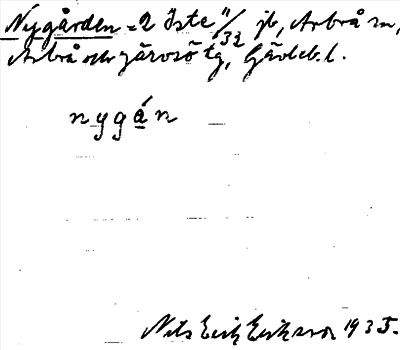 Nygården = 2 Iste 11/32 jb, Arbrå sn,
Arbrå och Järvsö tg, Gävleb. l.
nygán
Nils Erik Eriksson 1935.